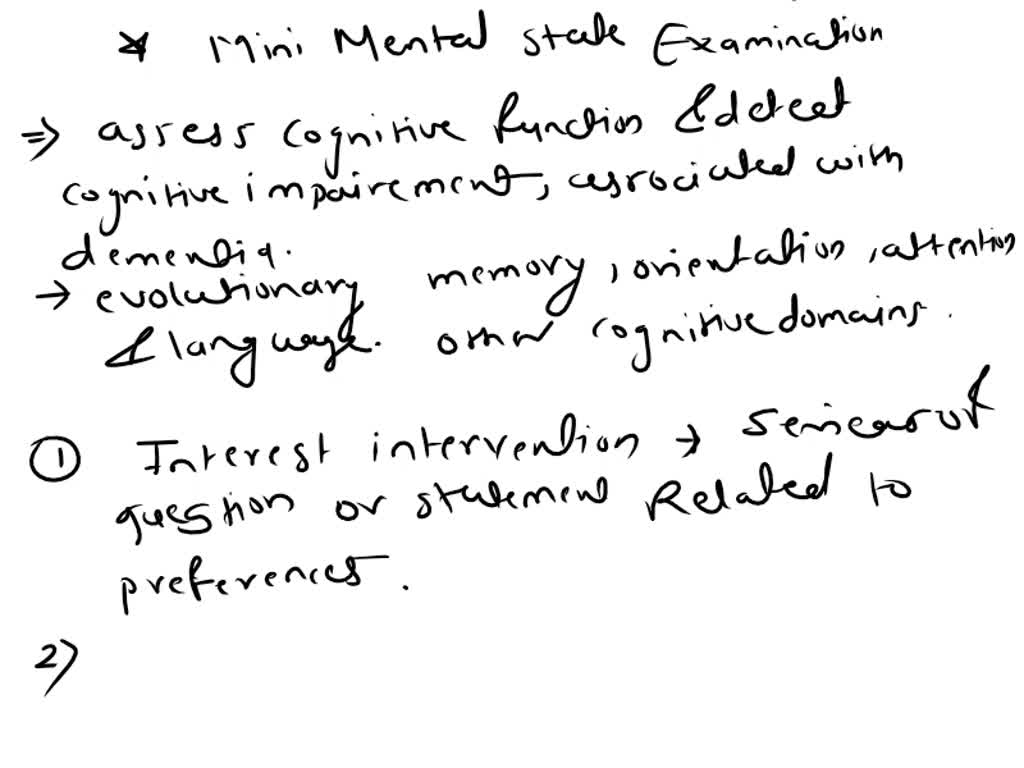 * Mini Mental State Examination
⇒ assess cognitive function & detect
cognitive impairement, associated with
dementia.
→ evolutionary memory, orientation, attention
& language. other cognitive domains.
① Interest intervention → series of
question or statement Related to
preferences.
2)